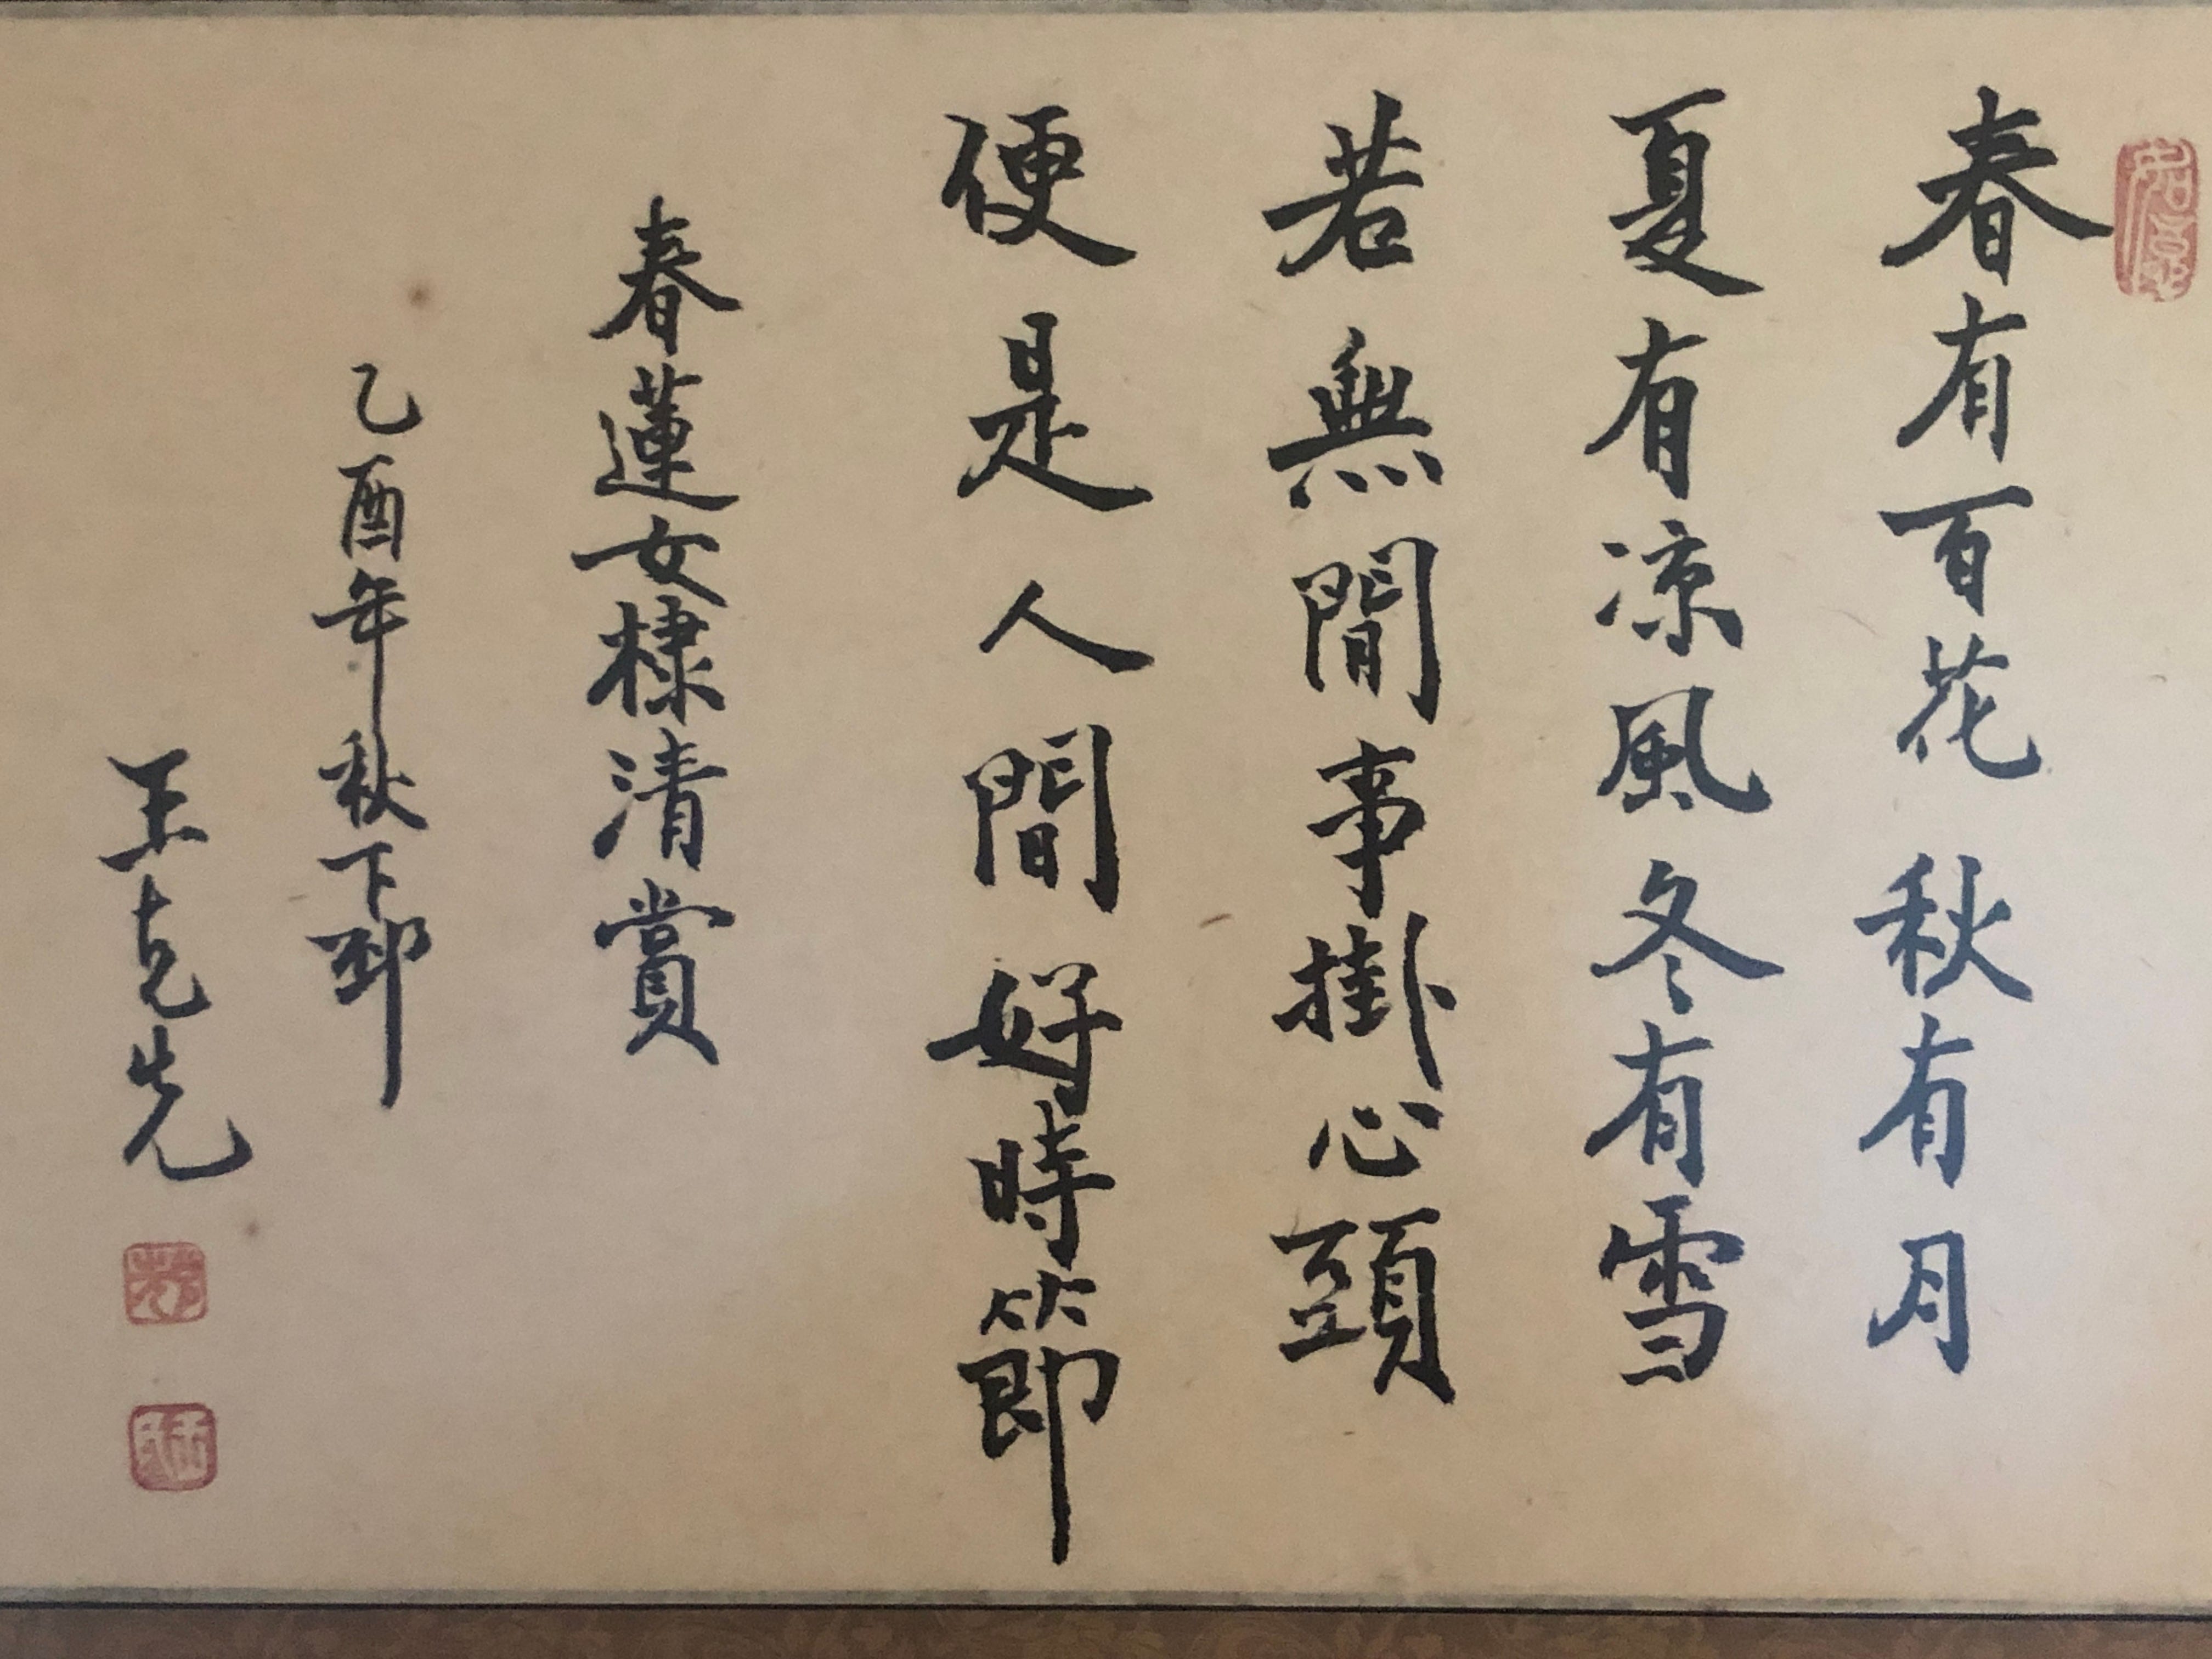 春有百花秋有月
夏有凉風冬有雪
若無間事掛心頭
便是人間好時節
春蓮女棣清賞
乙酉年秋下邳
王克先